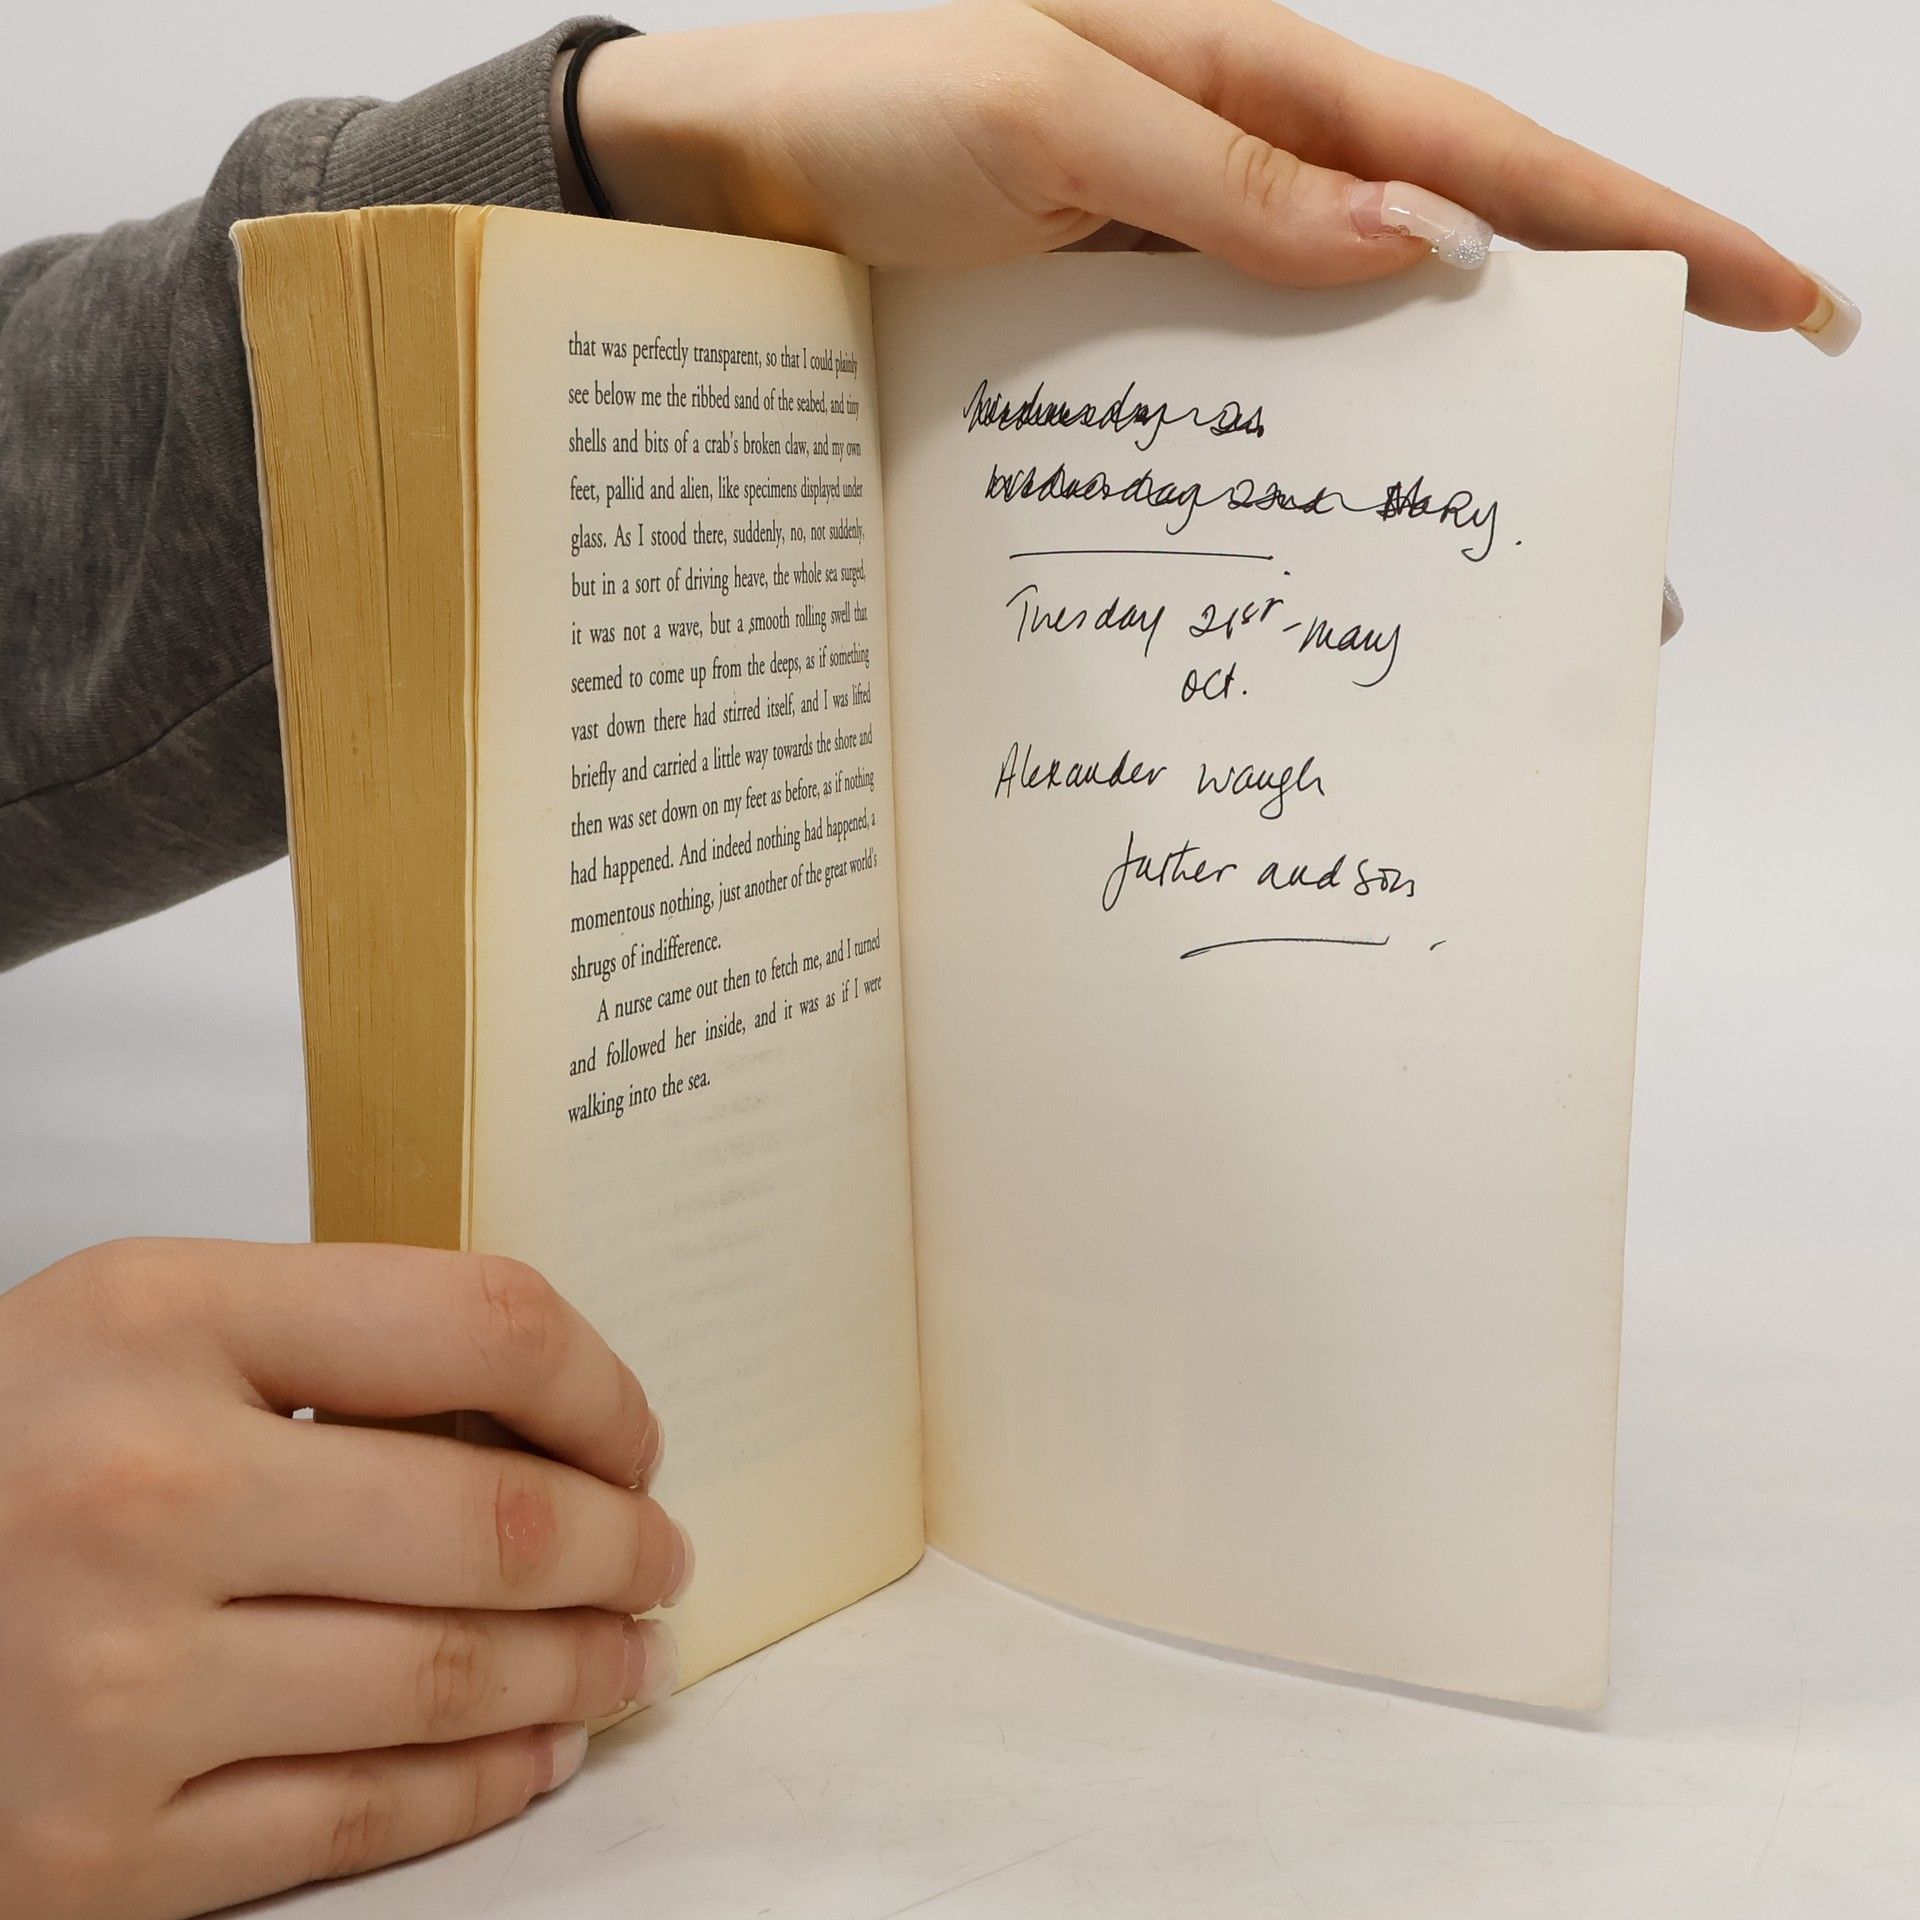 that was perfectly transparent, so that I could plainly
see below me the ribbed sand of the seabed, and tiny
shells and bits of a crab's broken claw, and my own
feet, pallid and alien, like specimens displayed under
glass. As I stood there, suddenly, no, not suddenly,
but in a sort of driving heave, the whole sea surged,
it was not a wave, but a smooth rolling swell that
seemed to come up from the deeps, as if something
vast down there had stirred itself, and I was lifted
briefly and carried a little way towards the shore and
then was set down on my feet as before, as if nothing
had happened. And indeed nothing had happened, a
momentous nothing, just another of the great world's
shrugs of indifference.
A nurse came out then to fetch me, and I turned
and followed her inside, and it was as if I were
walking into the sea.
Wednesday
Wednesday 22nd MARy.
Tuesday 21st - Mary
Oct.
Alexander Waugh
father and son